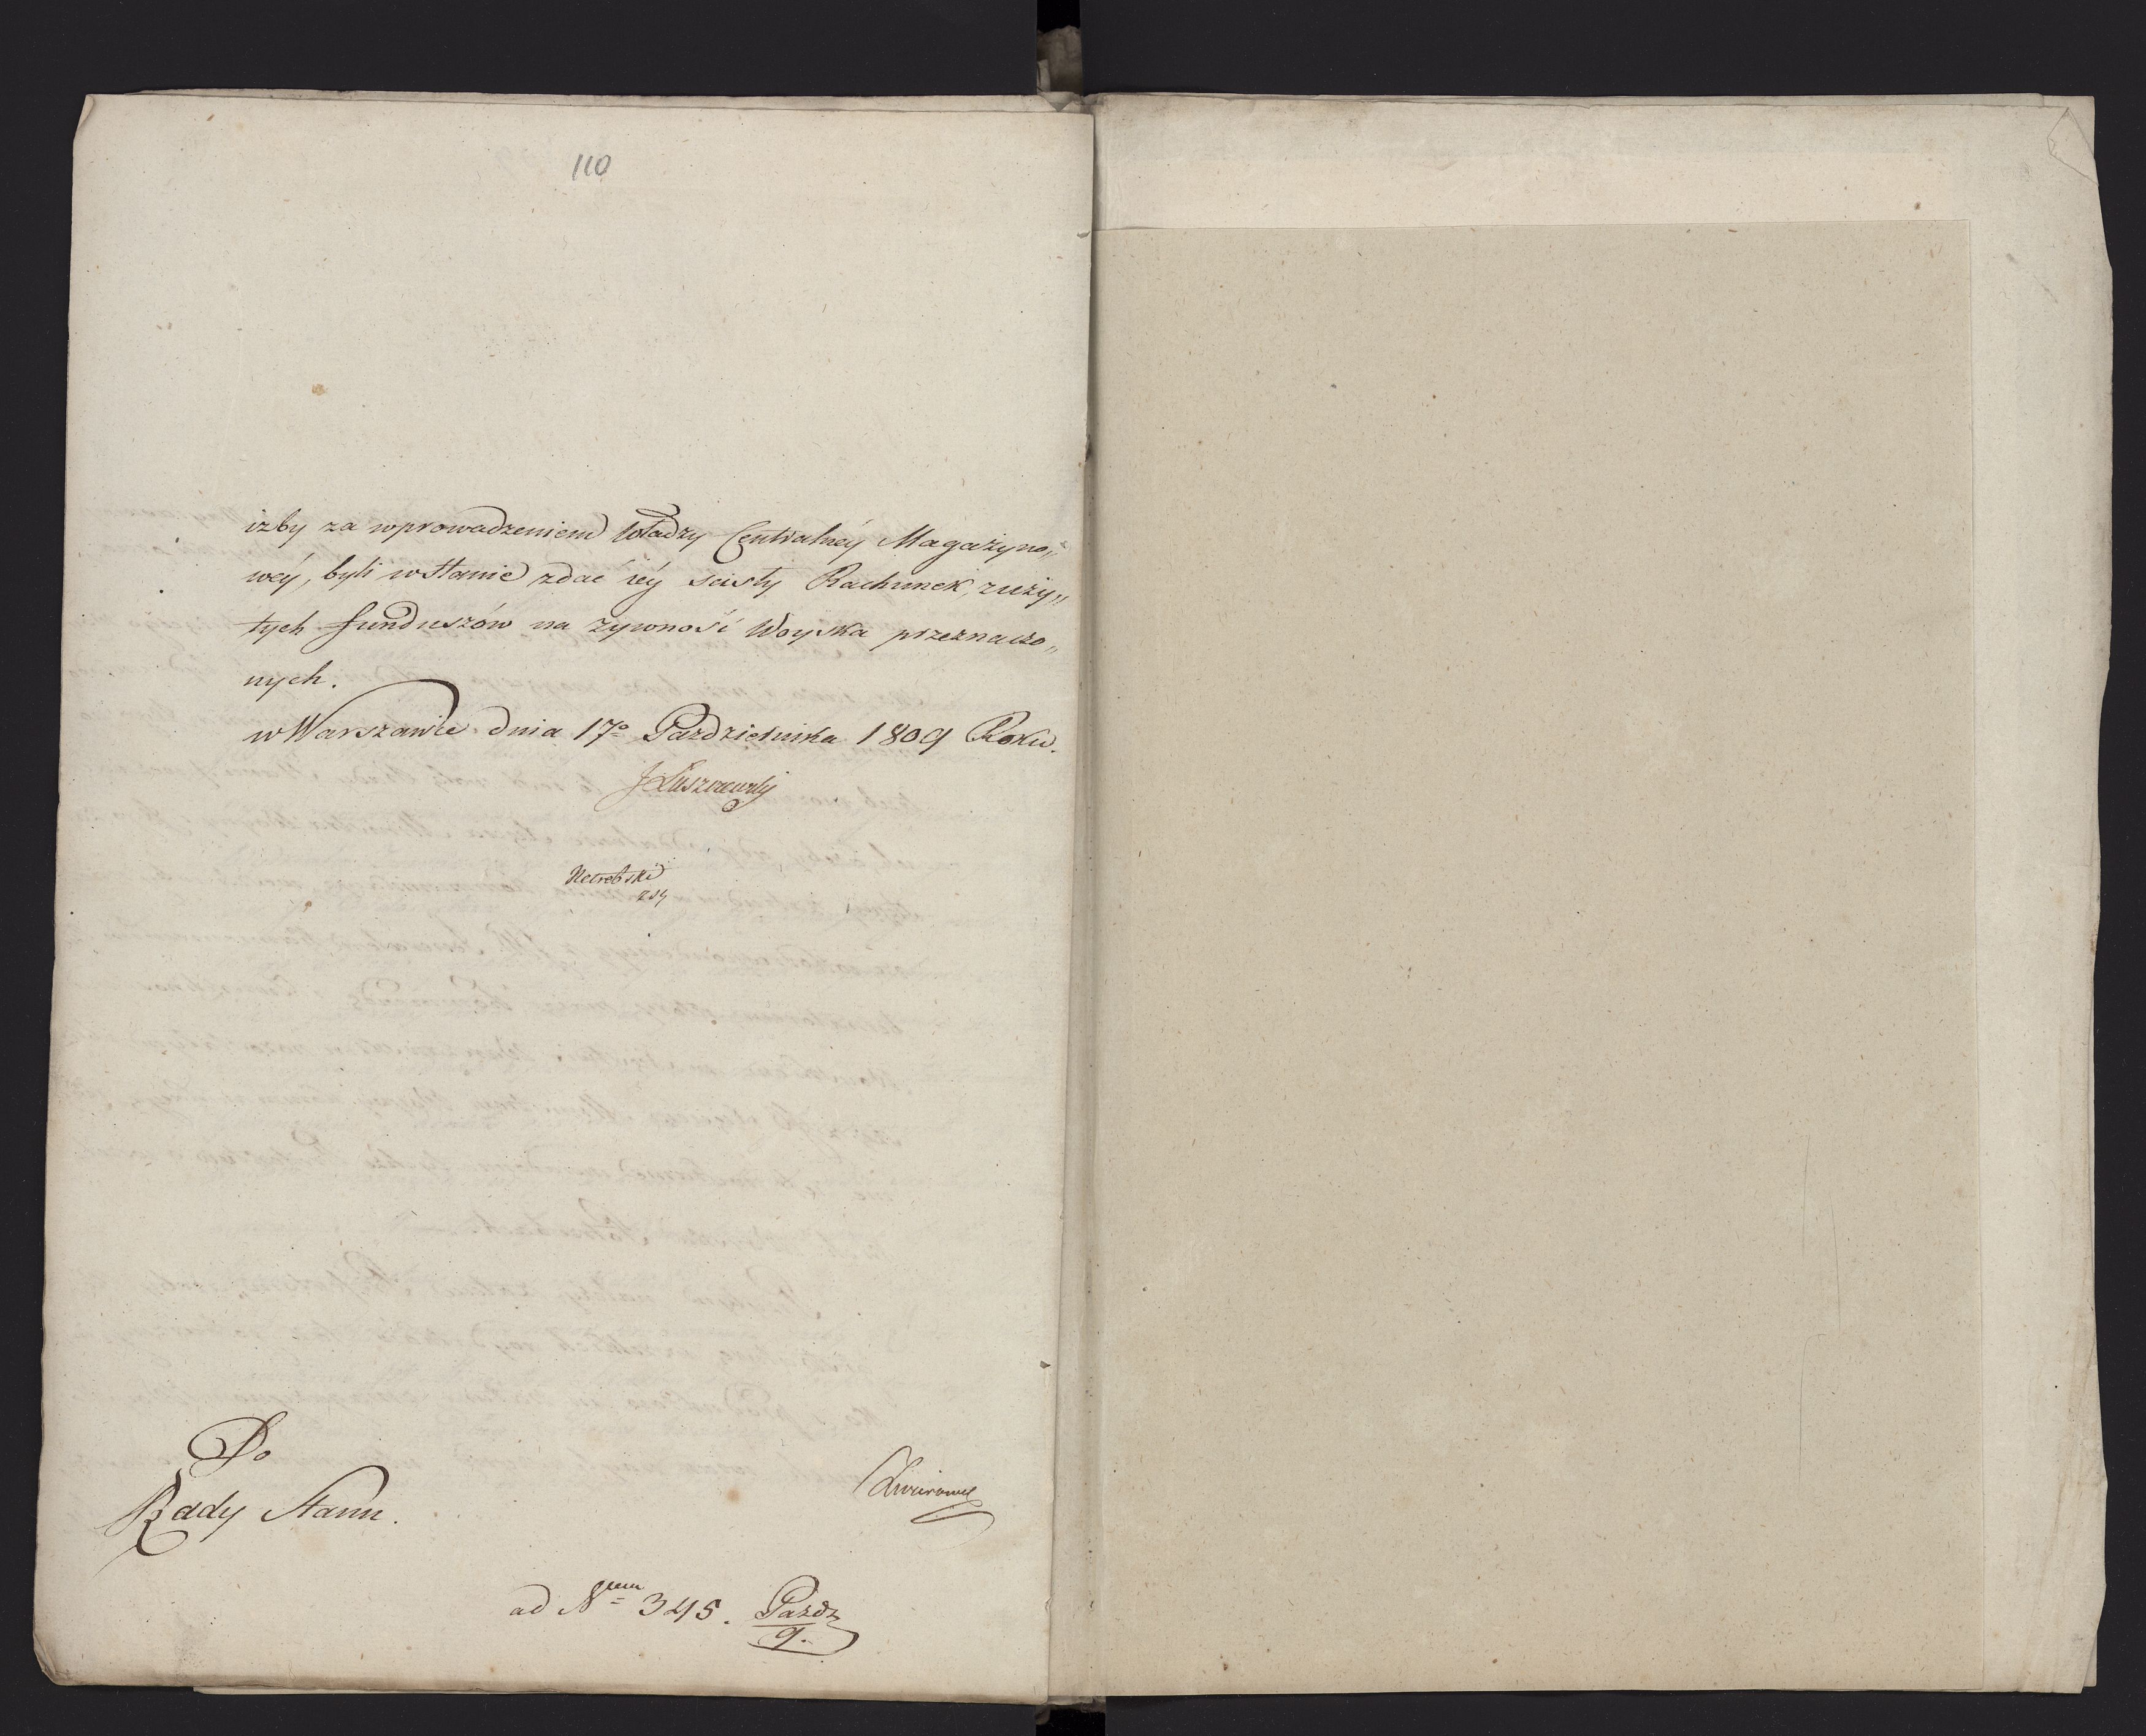 110
izby za wprowadzeniem Władzy Centralnéy Magazyno„
wéy, byli wstanie zdać iéy scisły Rachunek, zuży„
tych funduszów na zywność Woyska przeznaczo„
nych.
w Warszawie dnia 17º Pazdziernika 1809 Roku.
JŁuszczewski
Netrebski
zsy
Do
Rady Stanu.
ad Nrum 345. Pazdz
9.